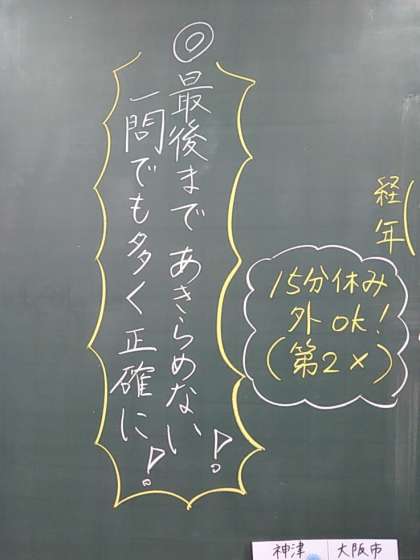 ◎最後まであきらめない!
一問でも多く正確に!
経年
15分休み
外OK!
(第2×)
神津
大阪市